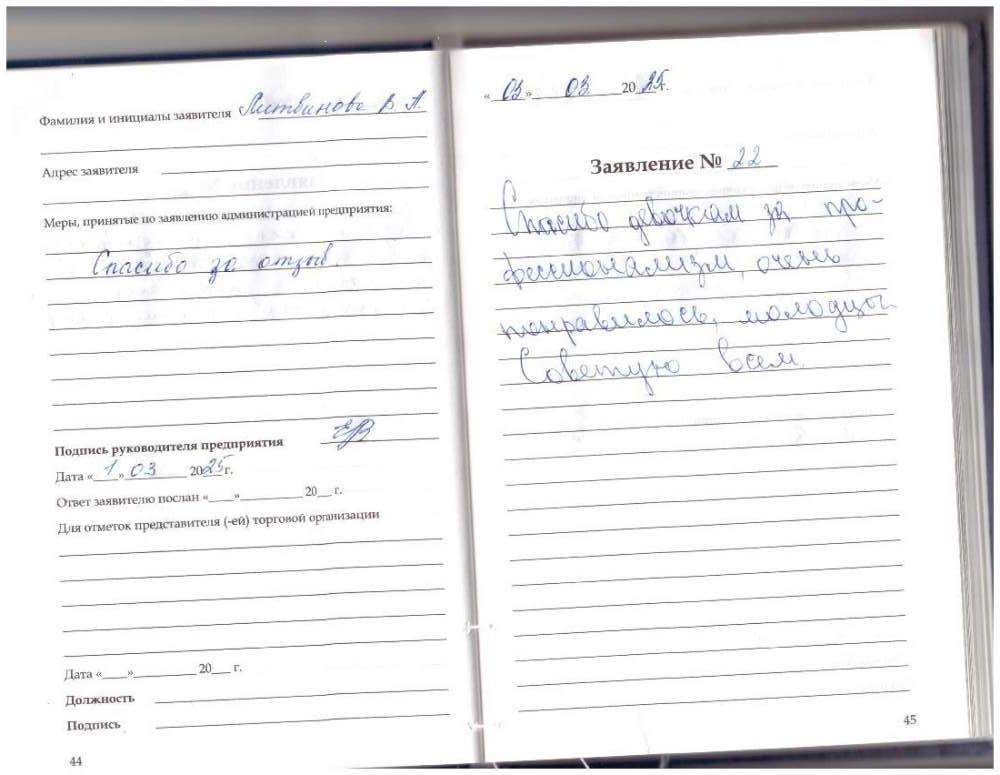 Фамилия и инициалы заявителя Литвинова В А.
Адрес заявителя
Меры, принятые по заявлению администрацией предприятия:
Спасибо за отзыв.
Подпись руководителя предприятия
Дата «1» 03 2025 г.
Ответ заявителю послан «____»__________ 20__ г.
Для отметок представителя (-ей) торговой организации
Дата «____»__________ 20___ г.
Должность
Подпись
44
«03» 03 2025 г.
Заявление № 22
Спасибо девочкам за про-
фессионализм, очень
понравилось, молодцы
Советую всем.
45